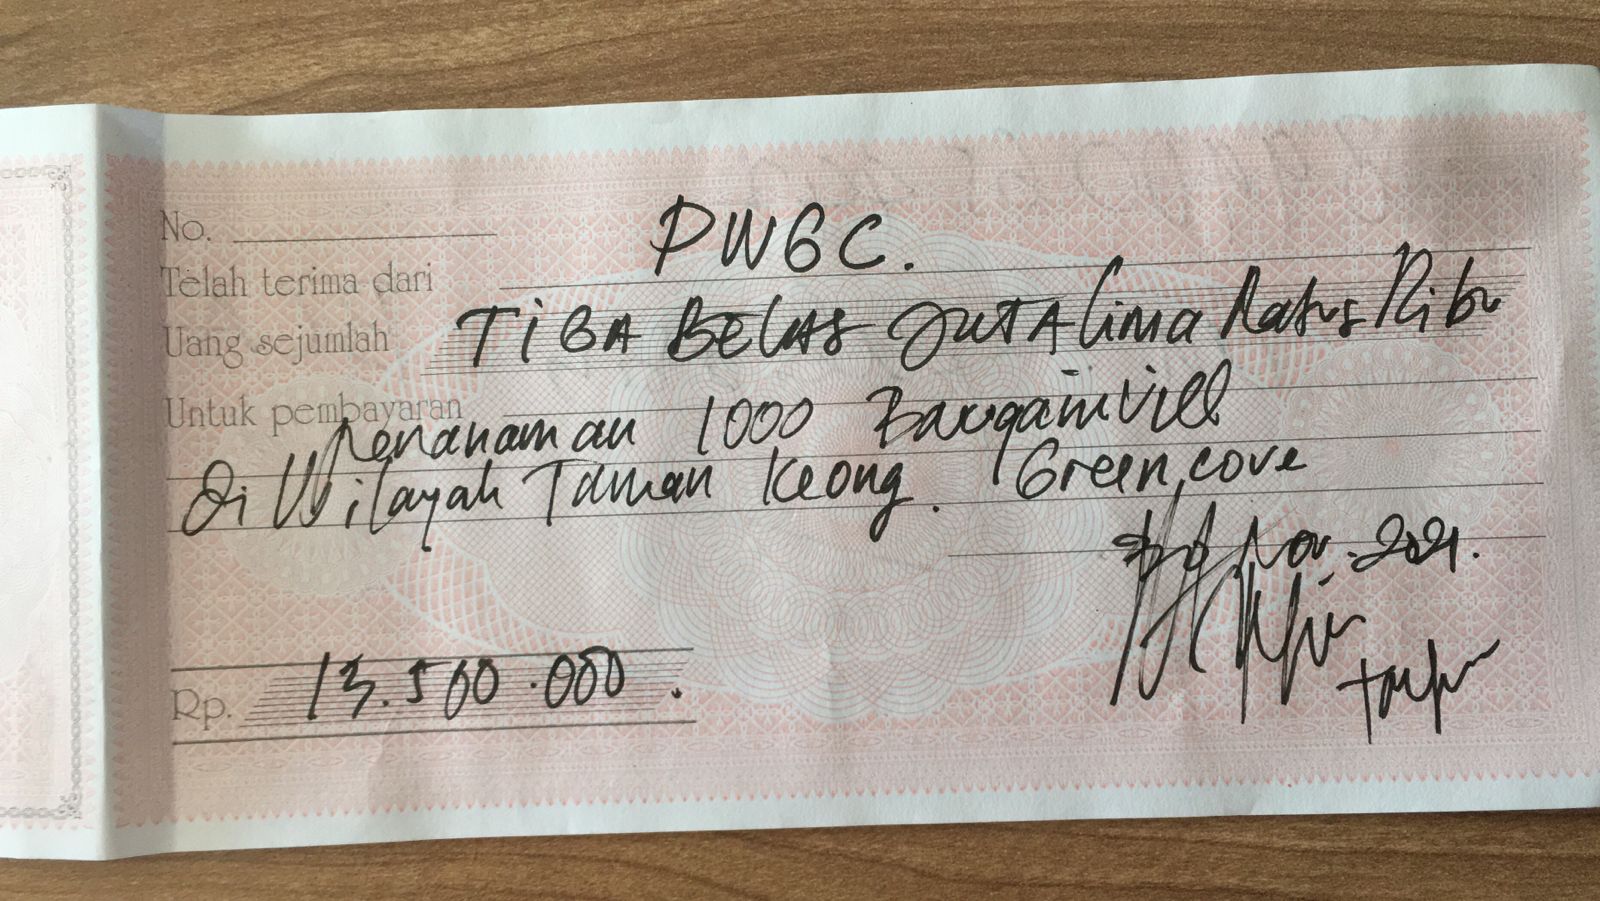 No.
Telah terima dari PWGC.
Uang sejumlah TIGA BELAS JUTA lima Ratus Ribu
Untuk pembayaran
Penanaman 1000 Baugainvill
Di Wilayah Taman Keong. Greencove
Nov. 2021.
Rp. 13.500.000.